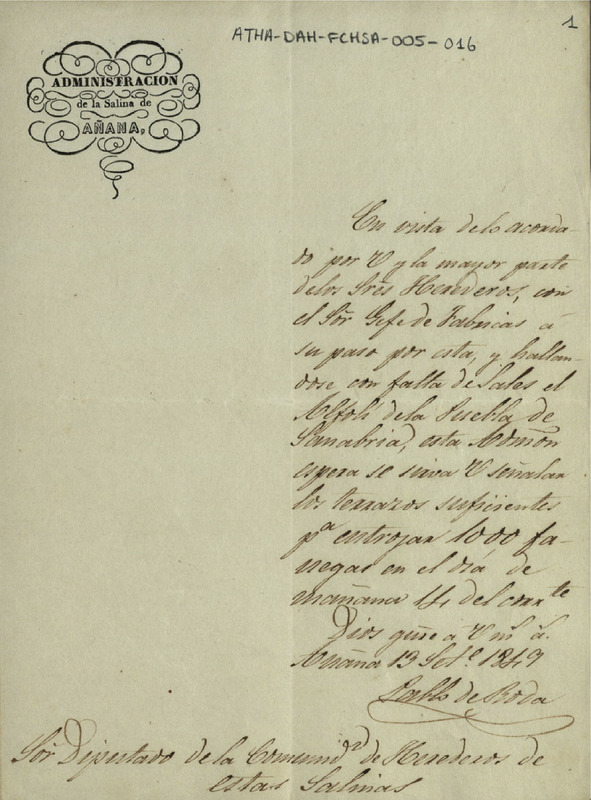 ATHA-DAH-FCHSA-005-016
1
ADMINISTRACION
de la Salina de
AÑANA,
En vista delo acorda-
do por V y la mayor parte
delos Sres Herederos, con
el Sor Gefe de Fabricas á
su paso por esta, y hallan-
dose con falta de Sales el
Alfolí dela Puebla de
Sanabria, esta Admon
espera se sirva V señalar
los terrazos suficientes
pa entrojar 1000 fa-
negas en el dia de
mañana 14 del corrte
Dios gue á V ms as.
Añana 13 Sete 1849
Pablo de Roda
Sor Diputado de la Comunidd de Herederos de
estas Salinas